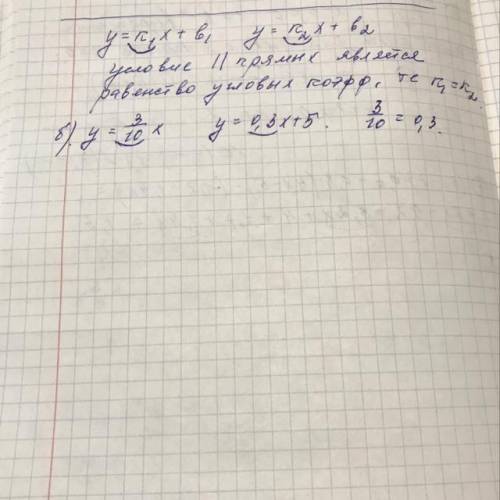 y = к₁x + b₁ y = к₂x + b₂
условие || прямых является
равенство угловых коэфф, те к₁ = к₂
б). y = 3/10 x y = 0,3x+5. 3/10 = 0,3.